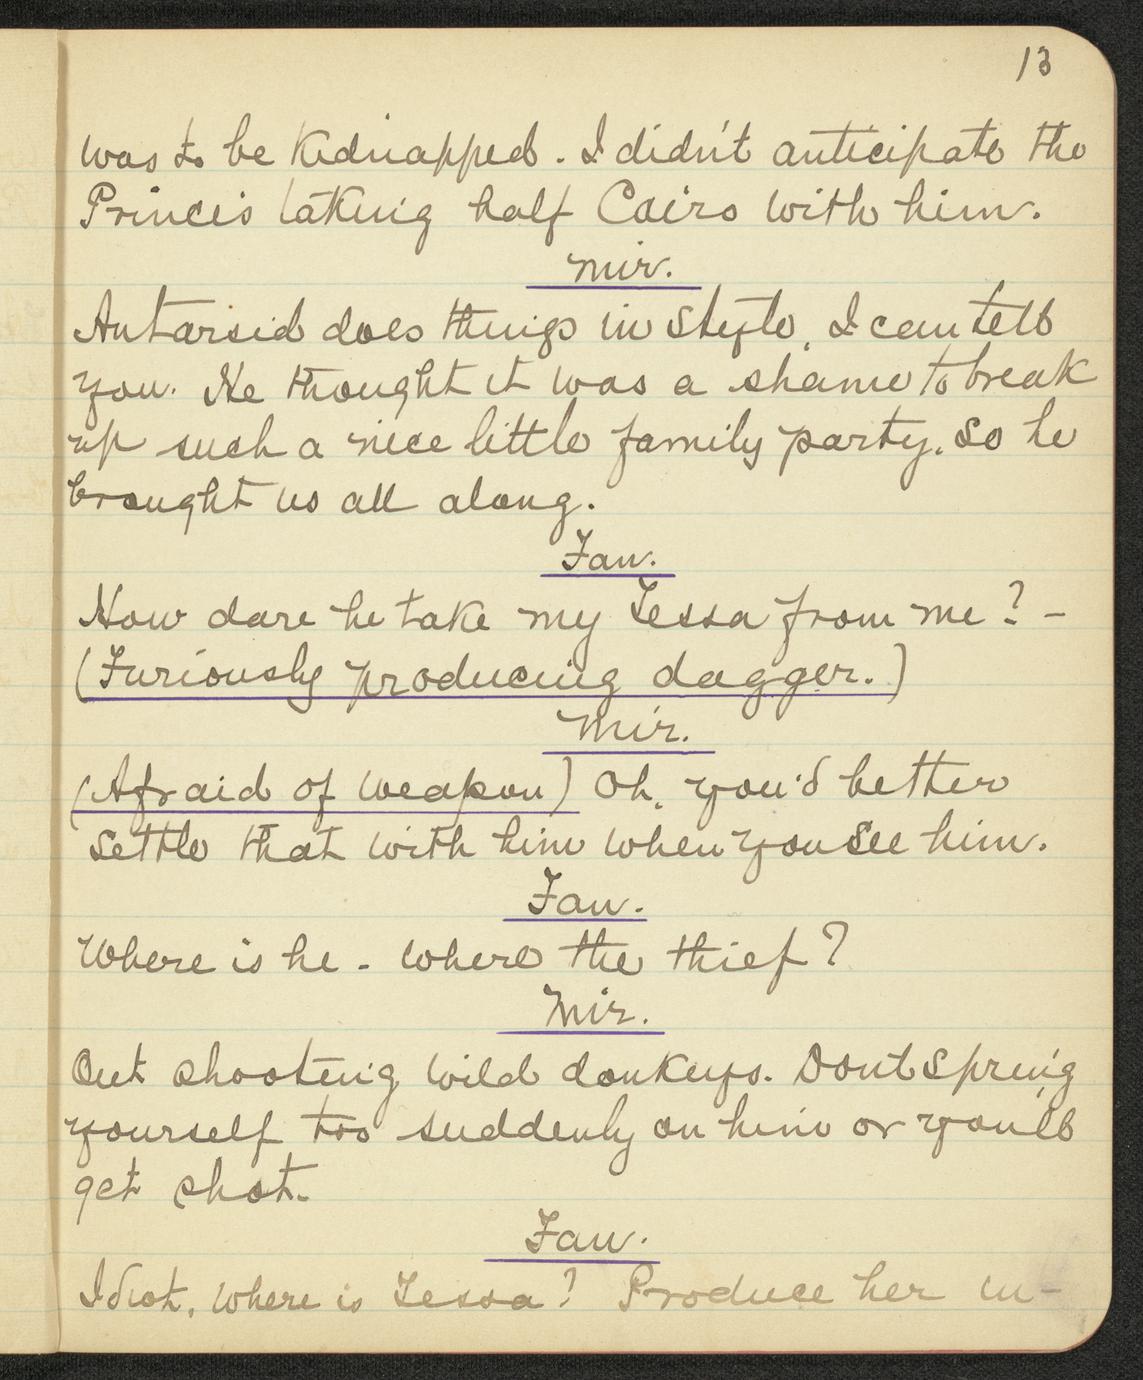 13
was to be kidnapped. I didn't anticipate the
Princes taking half Cairo with him.
Mir.
Antarsid does things in style, I can tell
you. He thought it was a shame to break
up such a nice little family party, so he
brought us all along.
Fan.
How dare he take my Tessa from me? -
(Furiously producing dagger.)
Mir.
(Afraid of weapon) Oh, you'd better
settle that with him when you see him.
Fan.
Where is he - where the thief?
Mir.
Out shooting wild donkeys. Dont spring
yourself too suddenly on him or you'll
get shot.
Fan.
Idiot, where is Tessa? Produce her in-